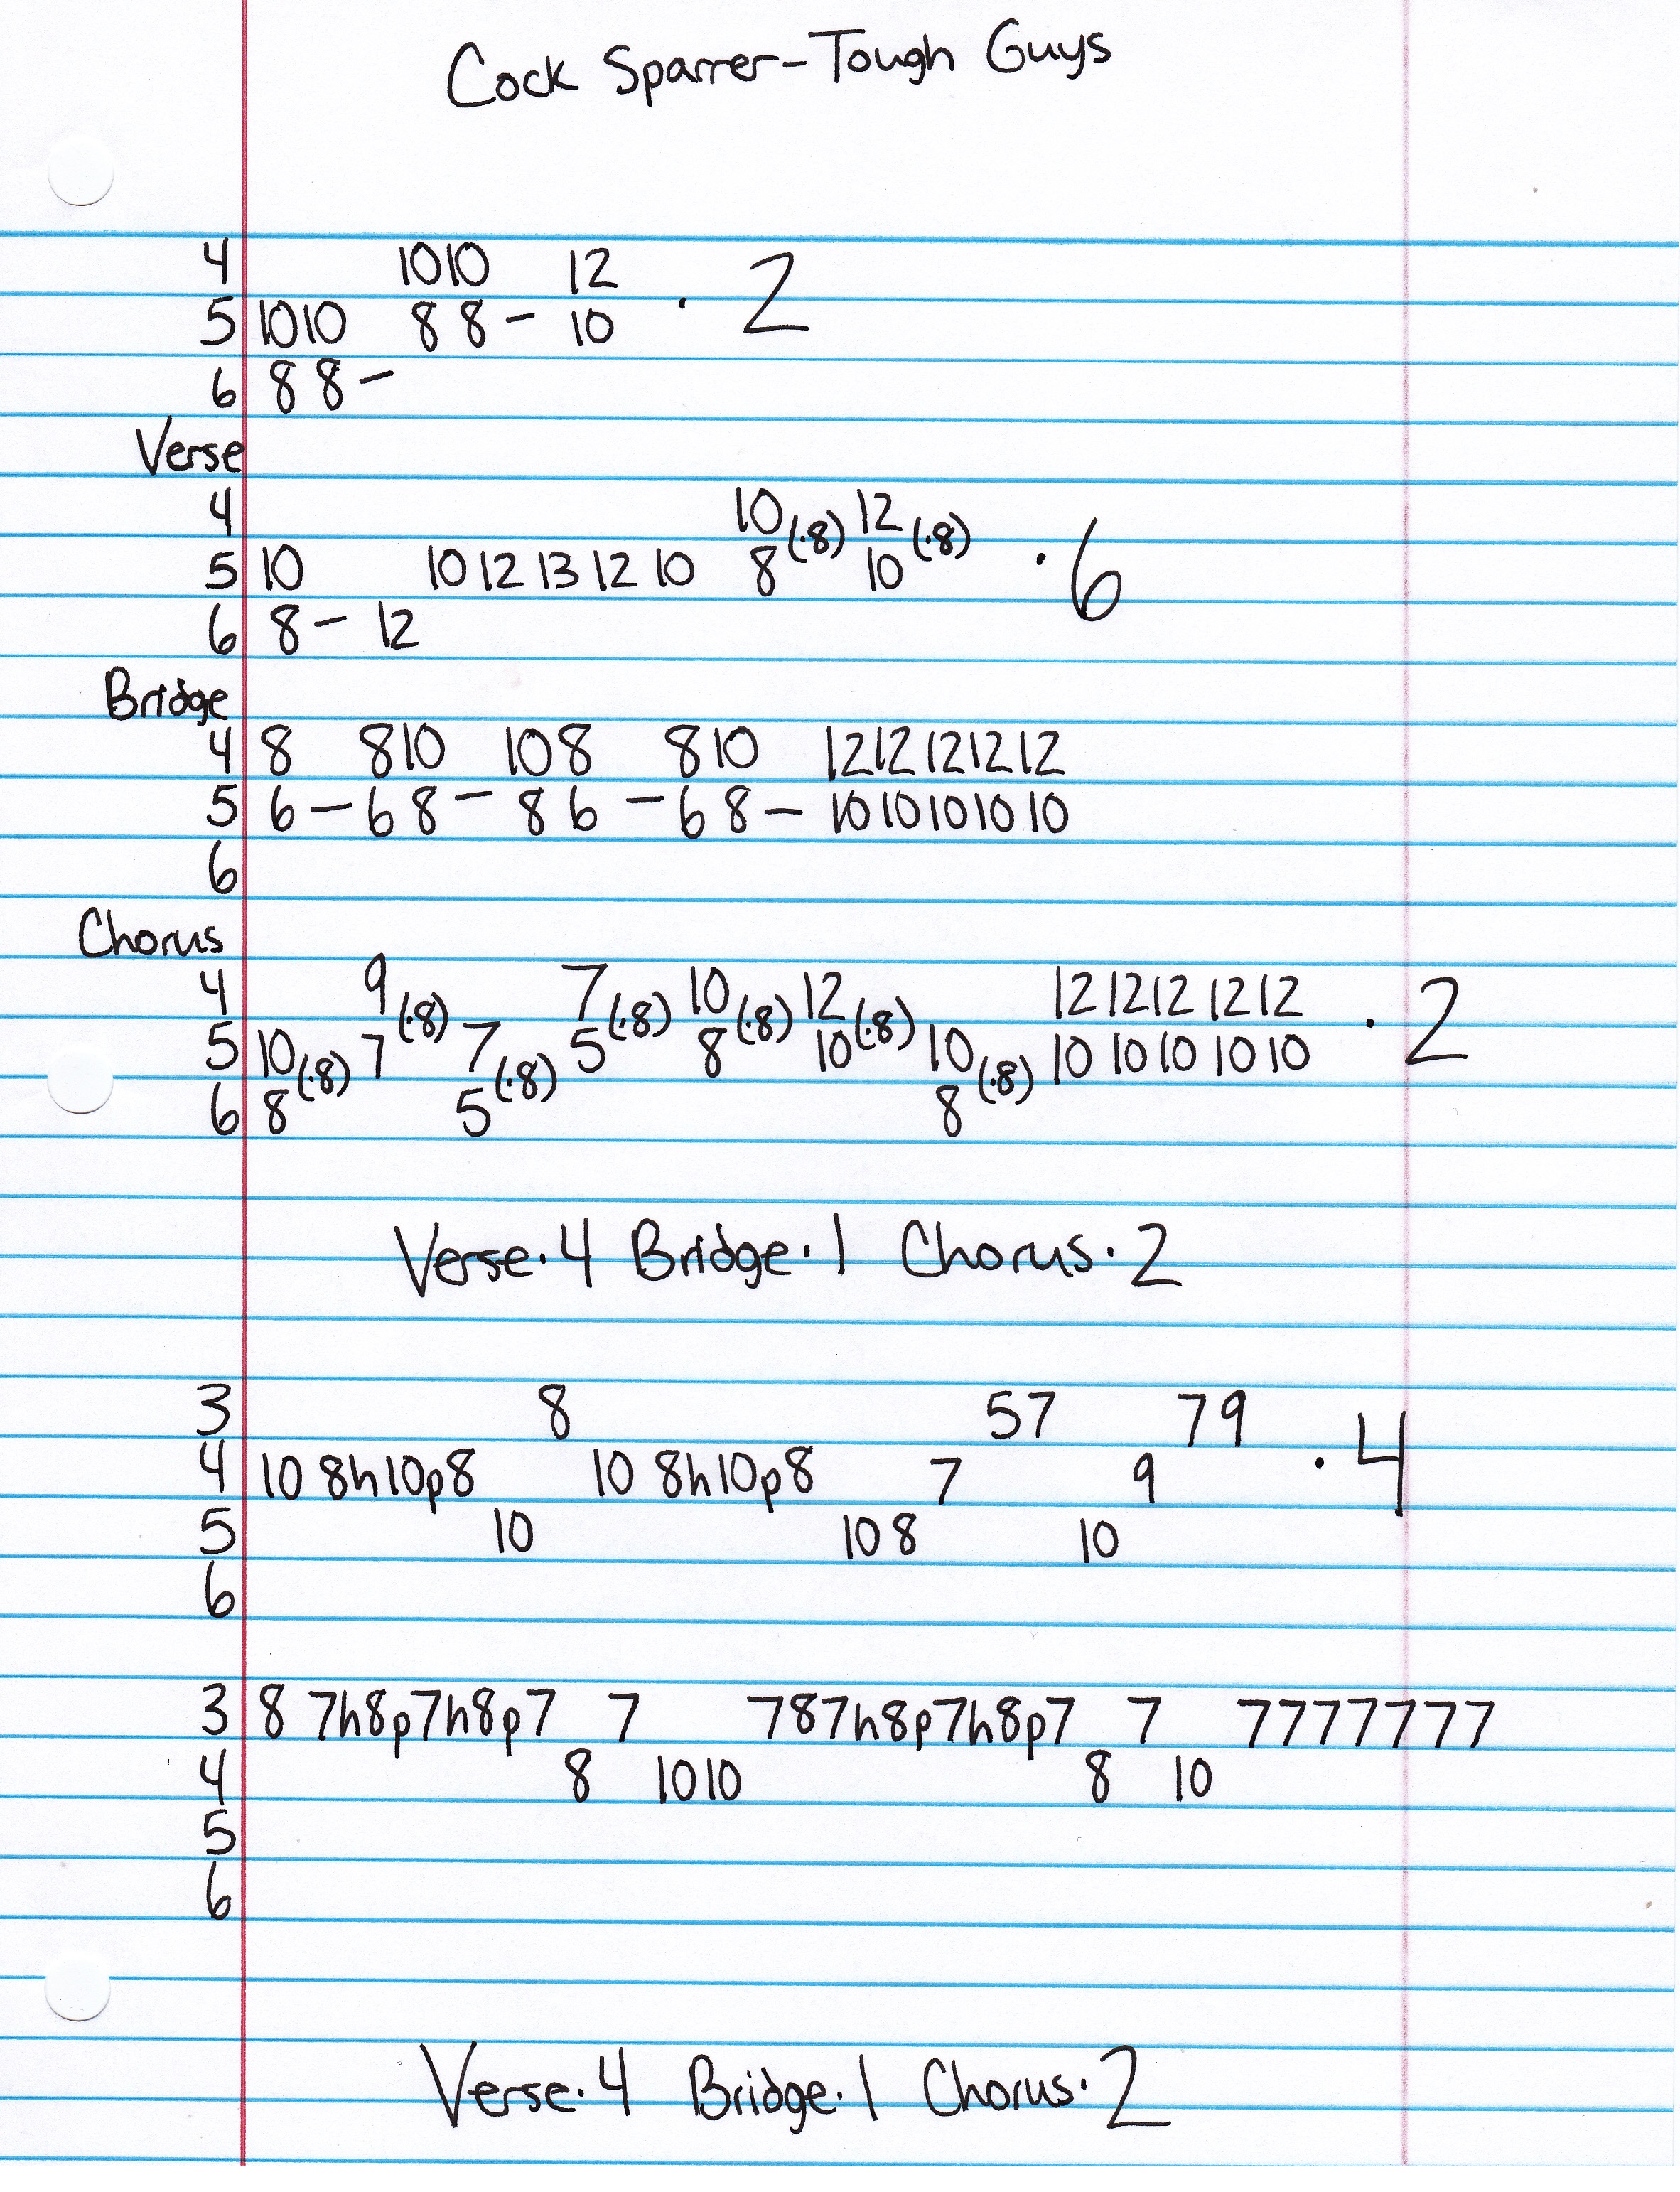 Cock Sparrer-Tough Guys
4 1010 12
5 1010 8 8 - 10 · 2
6 8 8 -
Verse
4 10(·8) 12(·8)
5 10 10 12 13 12 10 8 10 · 6
6 8 - 12
Bridge
4 8 8 10 10 8 8 10 12 12 12 12 12
5 6 - 6 8 - 8 6 - 6 8 - 10 10 10 10 10
6
Chorus
4 9(·8) 7(·8) 10(·8) 12(·8) 12 12 12 12 12 · 2
5 10(·8) 7 7(·8) 5 8 10 10(·8) 10 10 10 10 10
6 8 5 8
Verse·4 Bridge·1 Chorus·2
3 8 5 7 7 9
4 10 8h10p8 10 8h10p8 7 9 · 4
5 10 10 8 10
6
3 8 7h8p7h8p7 7 7 8 7h8p7h8p7 7 7 7 7 7 7 7 7
4 8 10 10 8 10
5
6
Verse·4 Bridge·1 Chorus·2